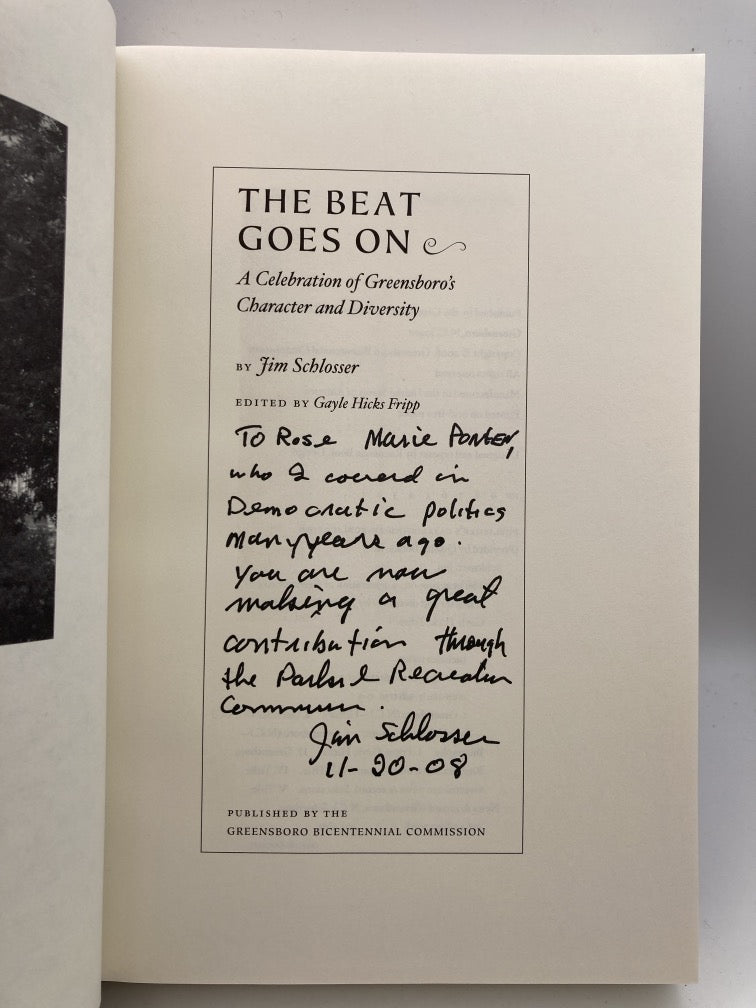 THE BEAT
GOES ON
A Celebration of Greensboro's
Character and Diversity
BY Jim Schlosser
EDITED BY Gayle Hicks Fripp
To Rose Marie
who I covered in
Democratic politics
many years ago.
You are now
making a great
contribution through
the Parks & Recreation
Commission.
Jim Schlosser
11-20-08
PUBLISHED BY THE
GREENSBORO BICENTENNIAL COMMISSION